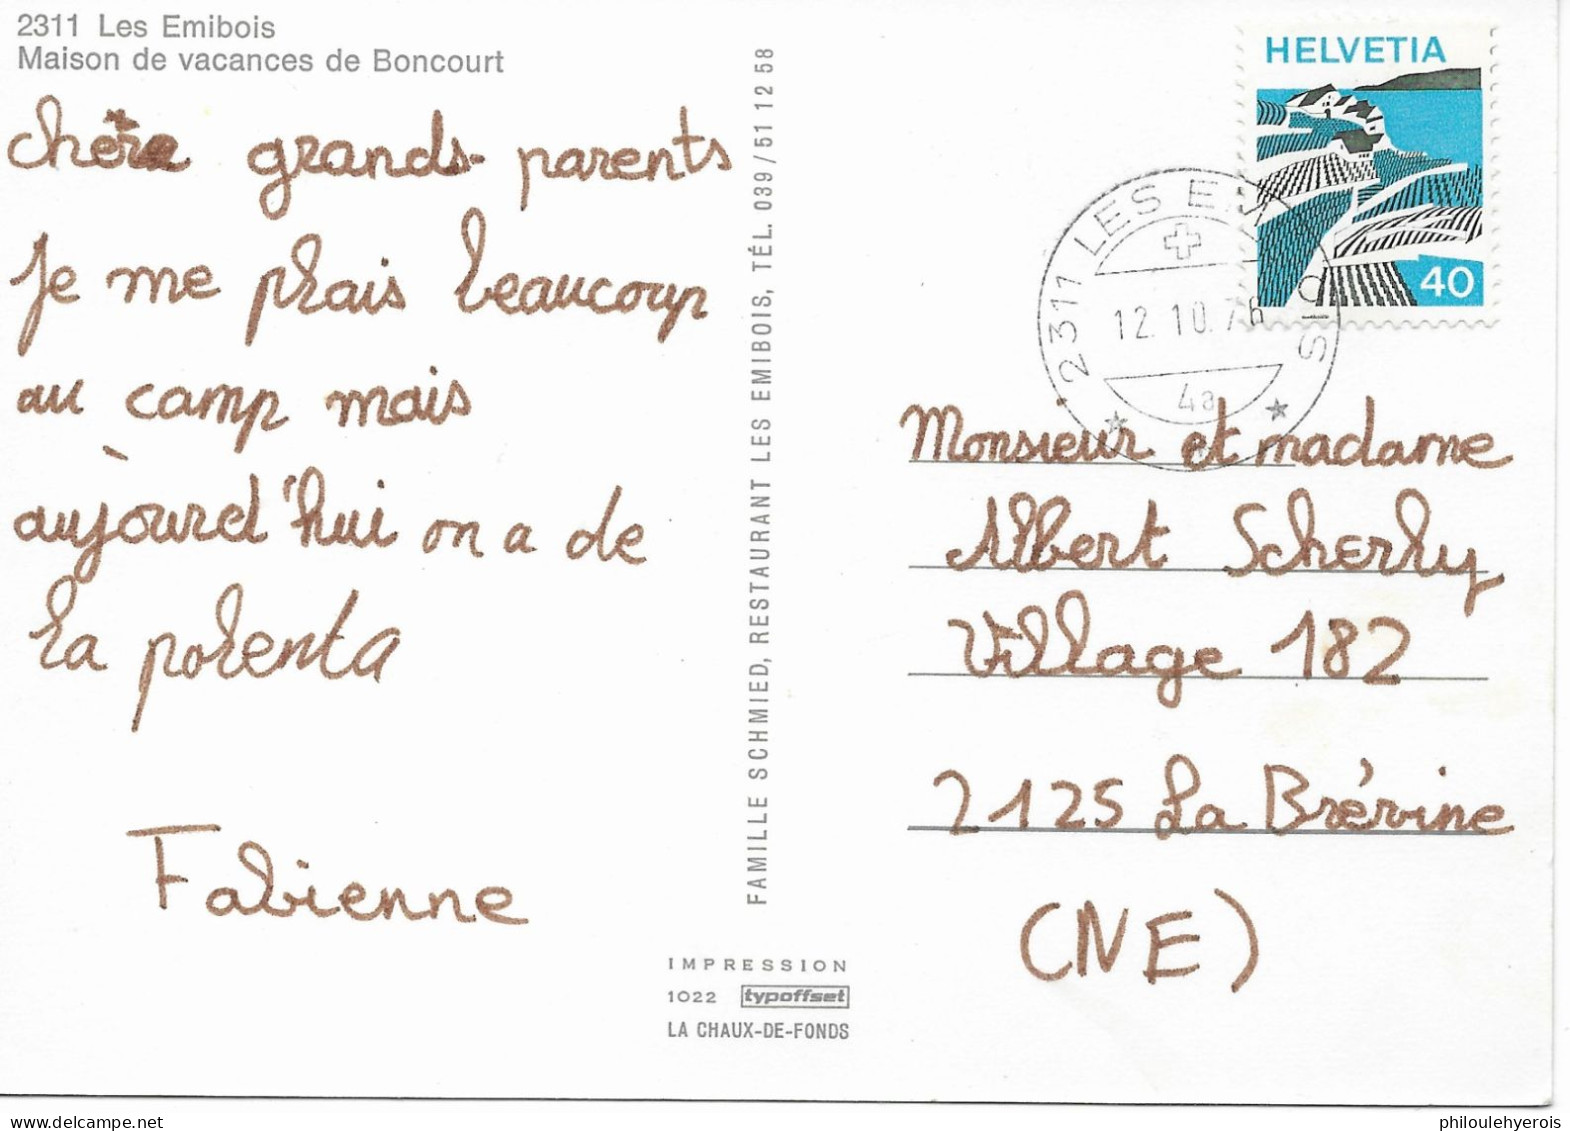 2311 Les Emibois
Maison de vacances de Boncourt
chère grands-parents
Je me plais beaucoup
au camp mais
aujourd'hui on a de
la polenta
Fabienne
FAMILLE SCHMIED, RESTAURANT LES EMIBOIS, TÉL. 039/51 12 58
IMPRESSION
1022 typoffset
LA CHAUX-DE-FONDS
HELVETIA
40
2311 LES E
12.10.76
4a
Monsieur et madame
Albert Scherly
Village 182
2125 La Brévine
(NE)
philoulehyerois